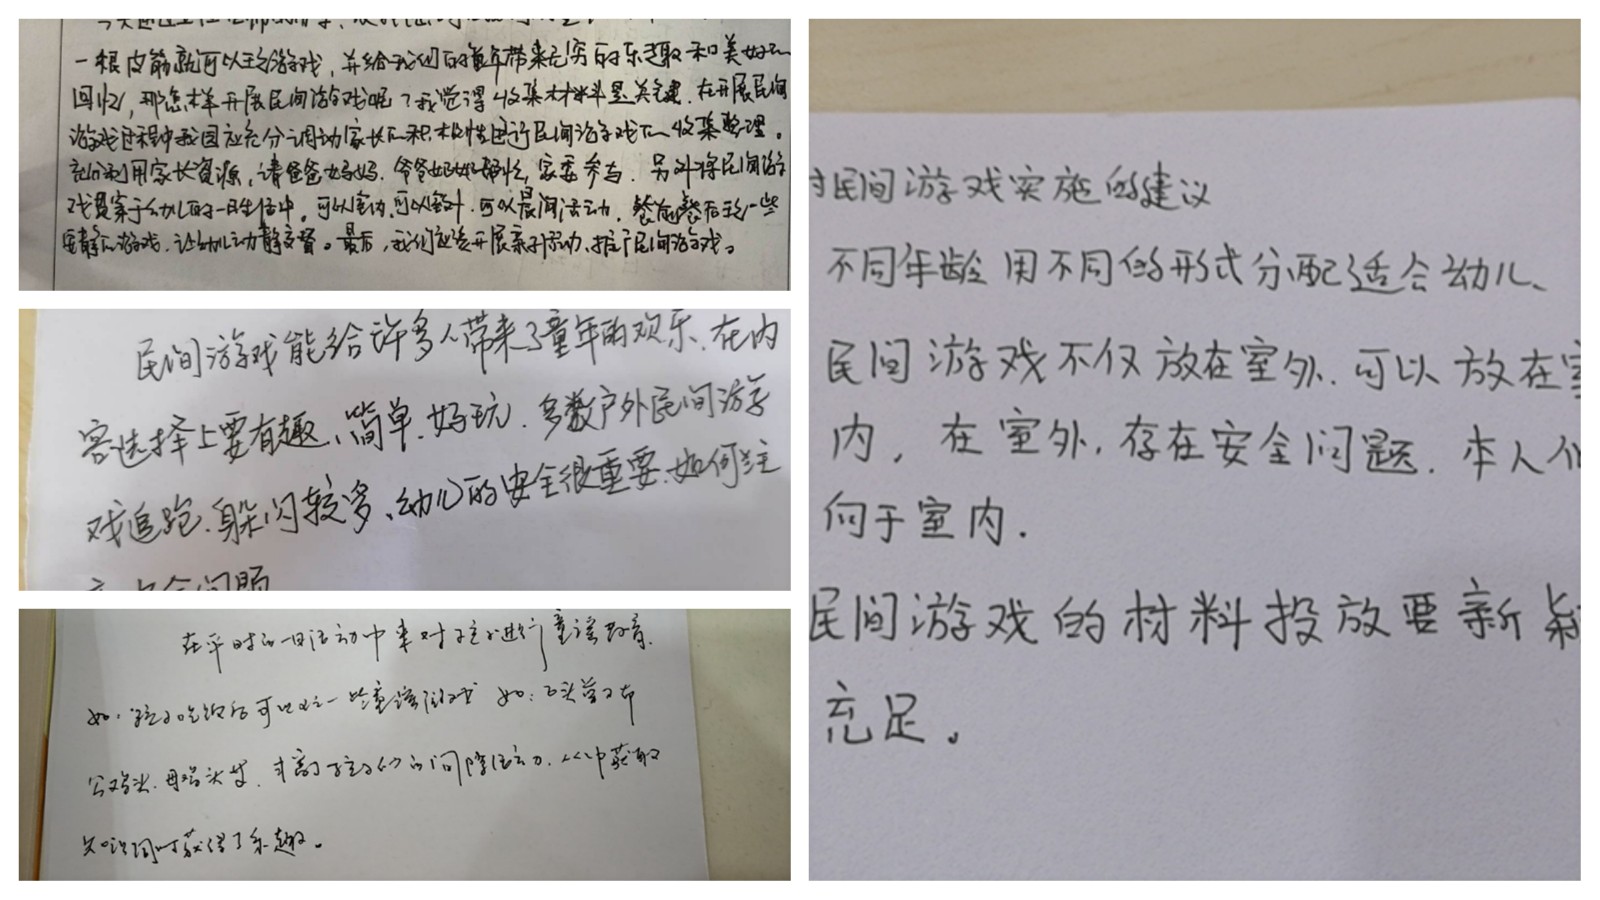 一根皮筋就可以玩游戏，并给我们的童年带来无穷的乐趣和美好的
回忆，那怎样开展民间游戏呢？我觉得收集材料是关键．在开展民间
游戏过程中我园应充分调动家长的积极性进行民间游戏的收集整理。
充分利用家长资源，请爸爸妈妈．爷爷奶奶，家委参与．另外将民间游
戏贯穿于幼儿的一日生活中，可以室内，可以室外．可以晨间活动，餐前餐后玩一些
安静的游戏，让幼儿动静交替。最后，我们应该开展亲子活动，推广民间游戏。
民间游戏能给许多人带来了童年的欢乐、在内
容选择上要有趣、简单、好玩．多数户外民间游
戏追跑、躲闪较多、幼儿的安全很重要、如何注
在平时的一日活动中来对孩子进行童谣教育．
如：孩子吃饭后可以玩一些童谣游戏 如：石头剪刀布
公鸡头、母鸡头等．丰富了孩子们的间隙活动．从中获取
知识同时获得了乐趣。
对民间游戏实施的建议
不同年龄用不同的形式分配适合幼儿、
民间游戏不仅放在室外．可以放在室
内，在室外，存在安全问题．本人
向于室内．
民间游戏的材料投放要新颖
充足。